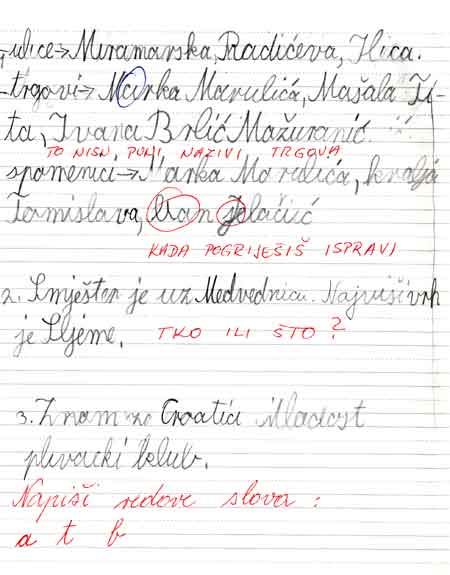 ulice→Miramarska, Radićeva, Ilica.
-trgovi→Marka Marulića, Mašala Ti-
ta, Ivana Brlić Mažuranić.
TO NISU PUNI NAZIVI TRGOVA
spomenici→Marka Marulića, kralja
Tomislava, Ban Jelačić
KADA POGRIJEŠIŠ ISPRAVI
2. Smješten je uz Medvednicu. Najviši vrh
je Sljeme. TKO ILI ŠTO?
3. Znam za Croatia Mladost
plivački klub.
Napiši redove slova:
a t b